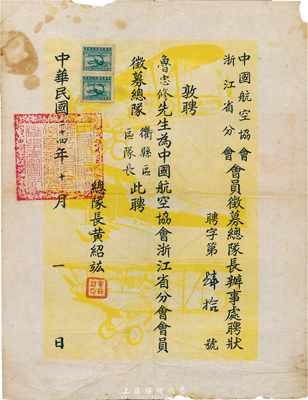 中國航空協會會員徵募總隊長辦事處聘狀
浙江省分會
聘字第 肆拾 號
敦聘
魯忠修先生為中國航空協會浙江省分會會員
徵募總隊 衢縣區 區隊長 此聘
總隊長黃紹竑
中華民國二十四年十月一日